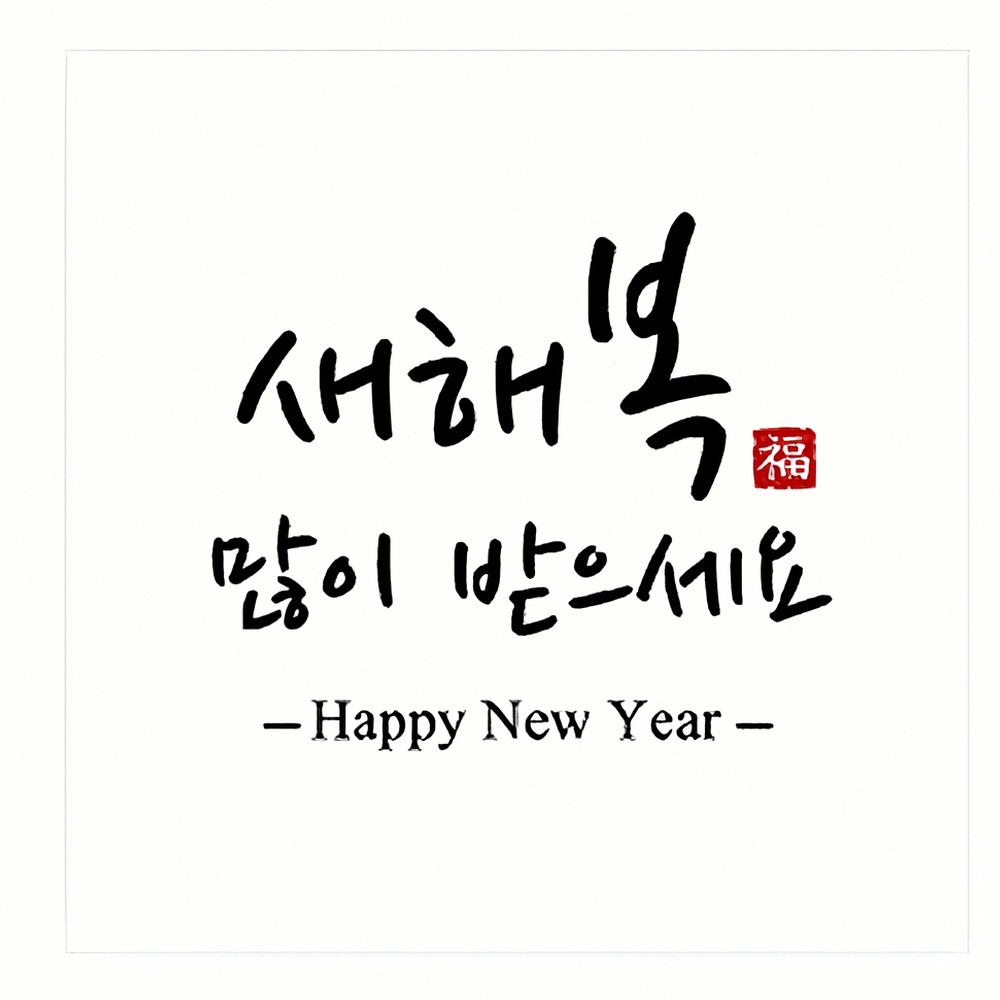 새해복
福
많이 받으세요
– Happy New Year –